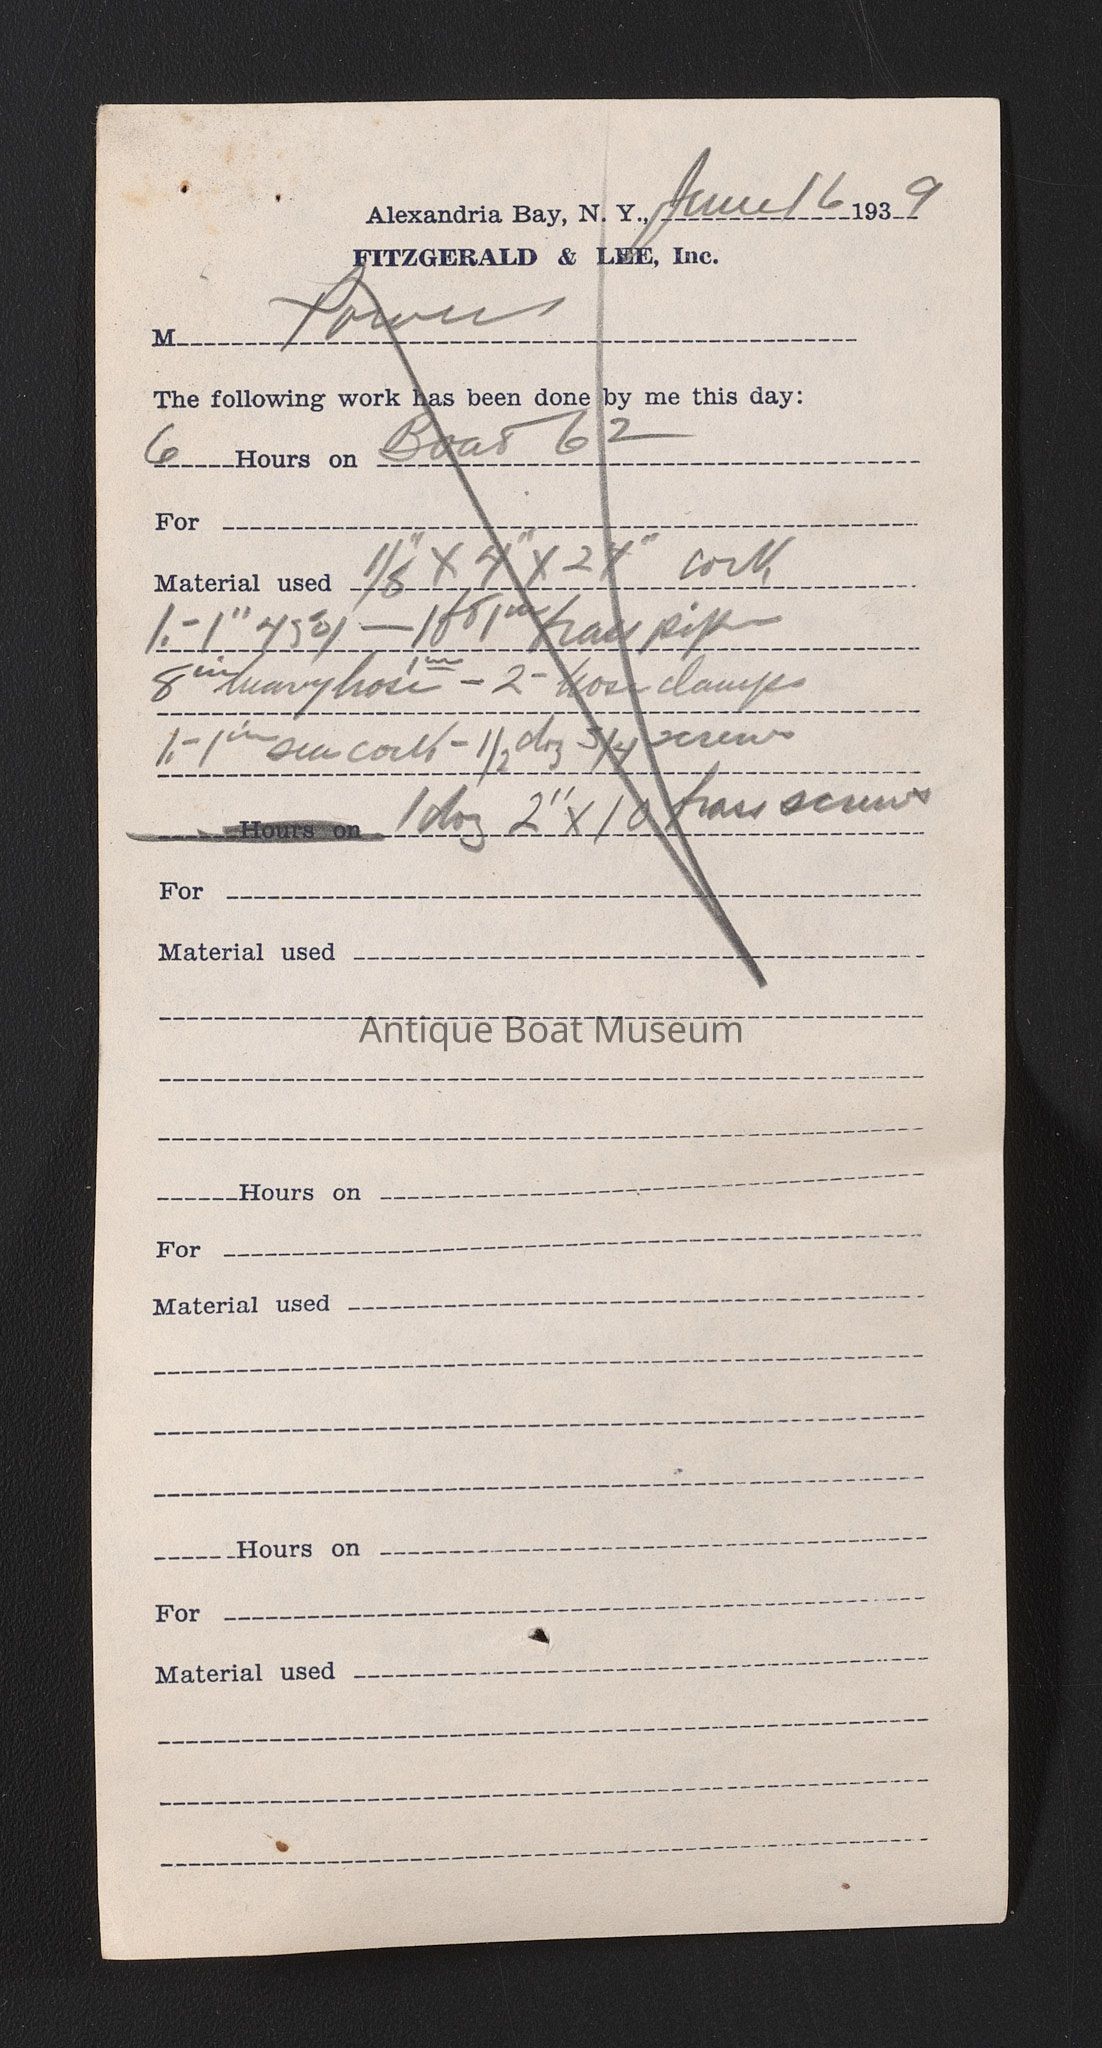 Alexandria Bay, N. Y., June 16 1939
FITZGERALD & LEE, Inc.
M Powers
The following work has been done by me this day:
6 Hours on Boat 62
For
Material used 1/8" X 4" X 24" cork
1-1" - 1 ft 1 in brass pipe
8 in heavy hose 1 in - 2 - hose clamps
1-1 in sea cock - 1/2 doz 3/4 screws
Hours on 1 doz 2" X 10 brass screws
For
Material used
Antique Boat Museum
Hours on
For
Material used
Hours on
For
Material used